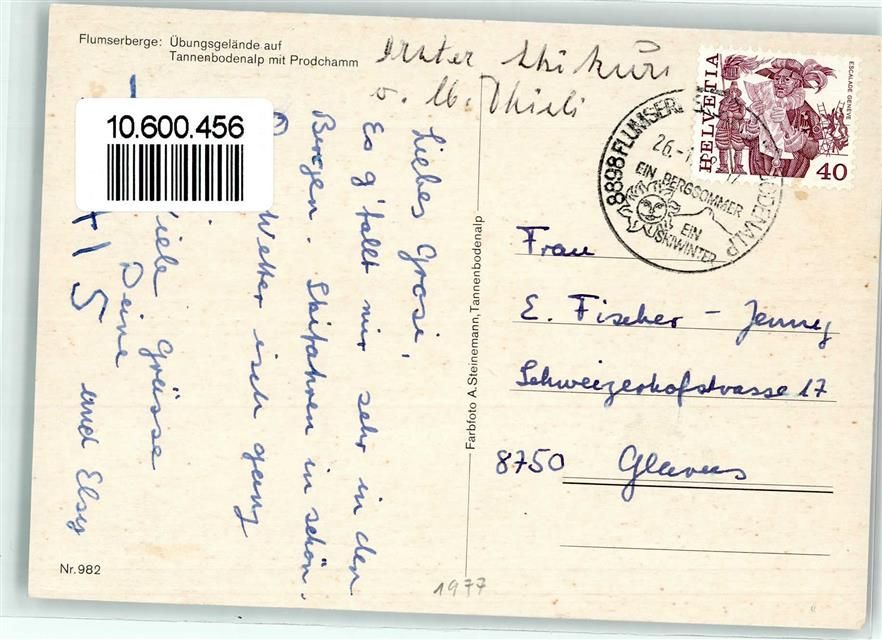 Flumserberge: Übungsgelände auf
Tannenbodenalp mit Prodchamm
erster Skikurs
v. U. Thieli
10.600.456
Liebes Grosi,
Es g'fallt mir sehr in den
Bergen. Skifahren in schön.
Wetter isch ganz
Viele Grüsse
Deine
und Elsy
Nr. 982
Farbfoto A. Steinemann, Tannenbodenalp
1977
HELVETIA
ESCALADE GENÈVE
40
8898 FLUMSERBERG
26.-1
EIN BERGSOMMER
EIN
SKIWINTER
Frau
E. Fischer - Jenny
Schweizerhofstrasse 17
8750 Glarus